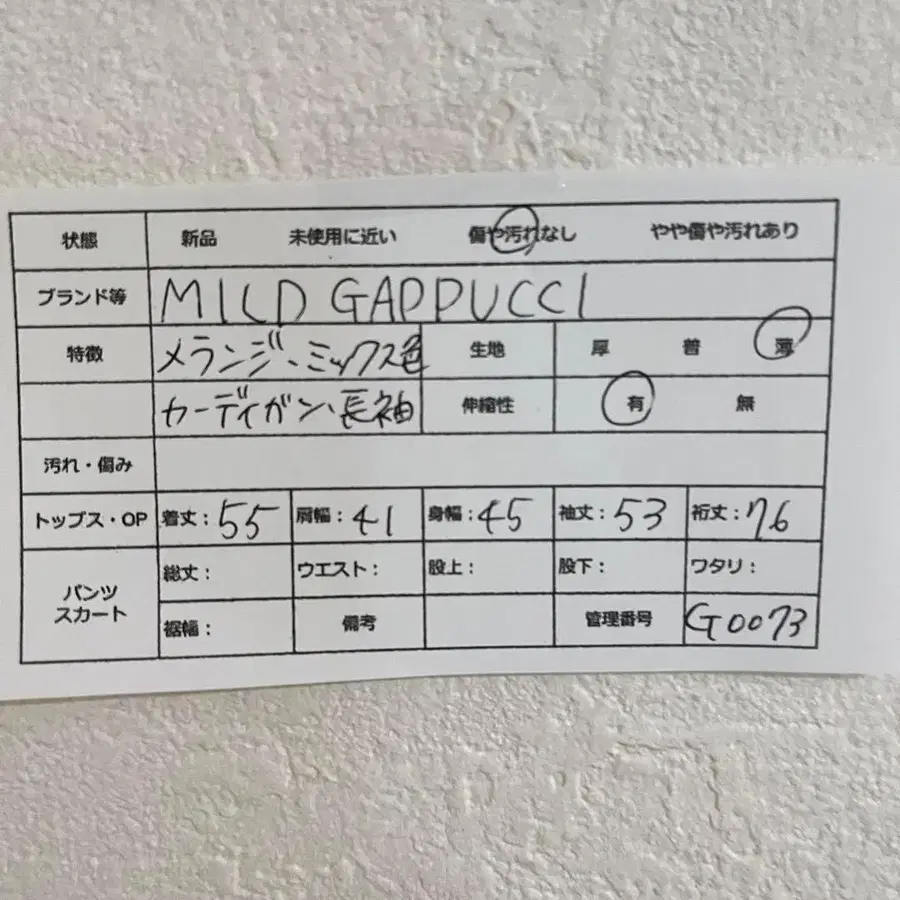 状態 新品 未使用に近い 傷や汚れなし やや傷や汚れあり
ブランド等 MILD GAPPUCCI
特徴 メランジ・ミックス色 生地 厚 普 薄
カーディガン・長袖 伸縮性 有 無
汚れ・傷み
トップス・OP 着丈：55 肩幅：41 身幅：45 袖丈：53 裄丈：76
パンツ スカート 総丈： ウエスト： 股上： 股下： ワタリ：
裾幅： 備考 管理番号 G0073